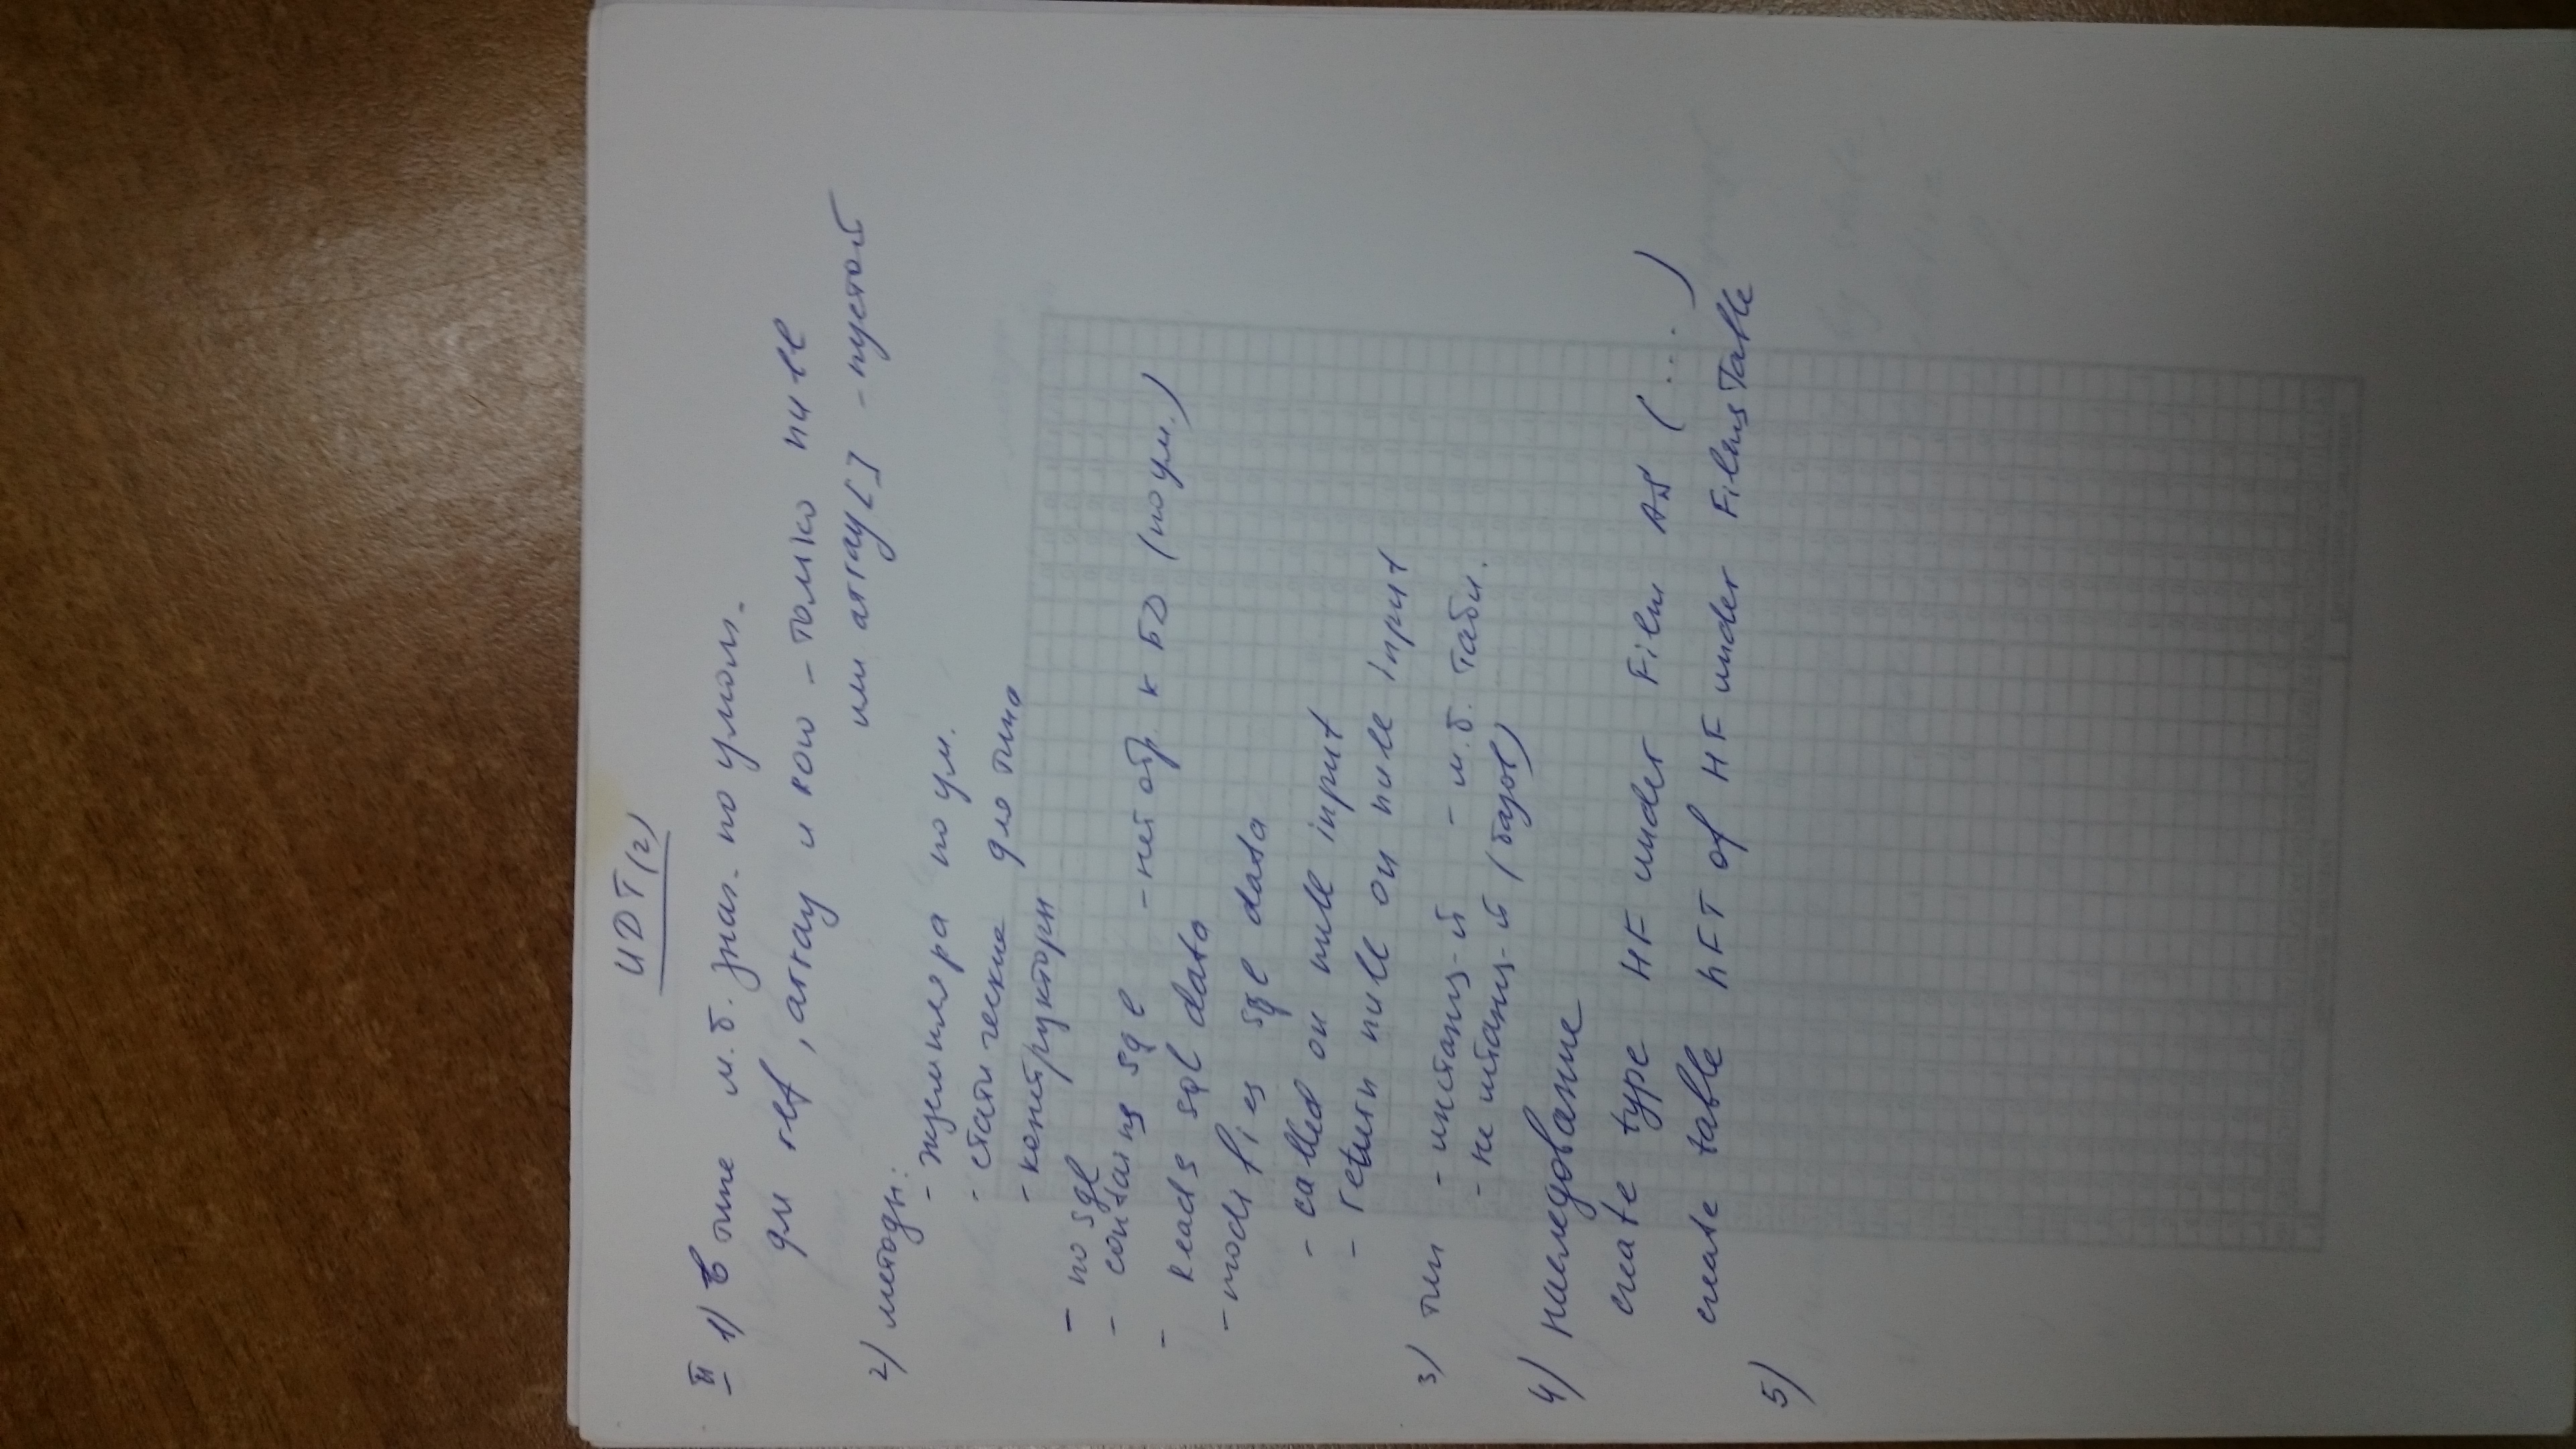 UDT(2)
II 1) в типе м.б. знач. по умолч.
для ref, array и row - только null
или array[] - пустой
2) методы:
- экземпляра по ум.
- статические для типа
- конструкторы
- no sql
- contains sql - нет обр. к БД (по ум.)
- reads sql data
- modifies sql data
- called on null input
- return null on null input
3) тип - инстанц-й - м.б. табл.
- не инстанц-й (базов)
4) наследование
create type HF under Film AS (...)
create table HFT of HF under FilmsTable
5)